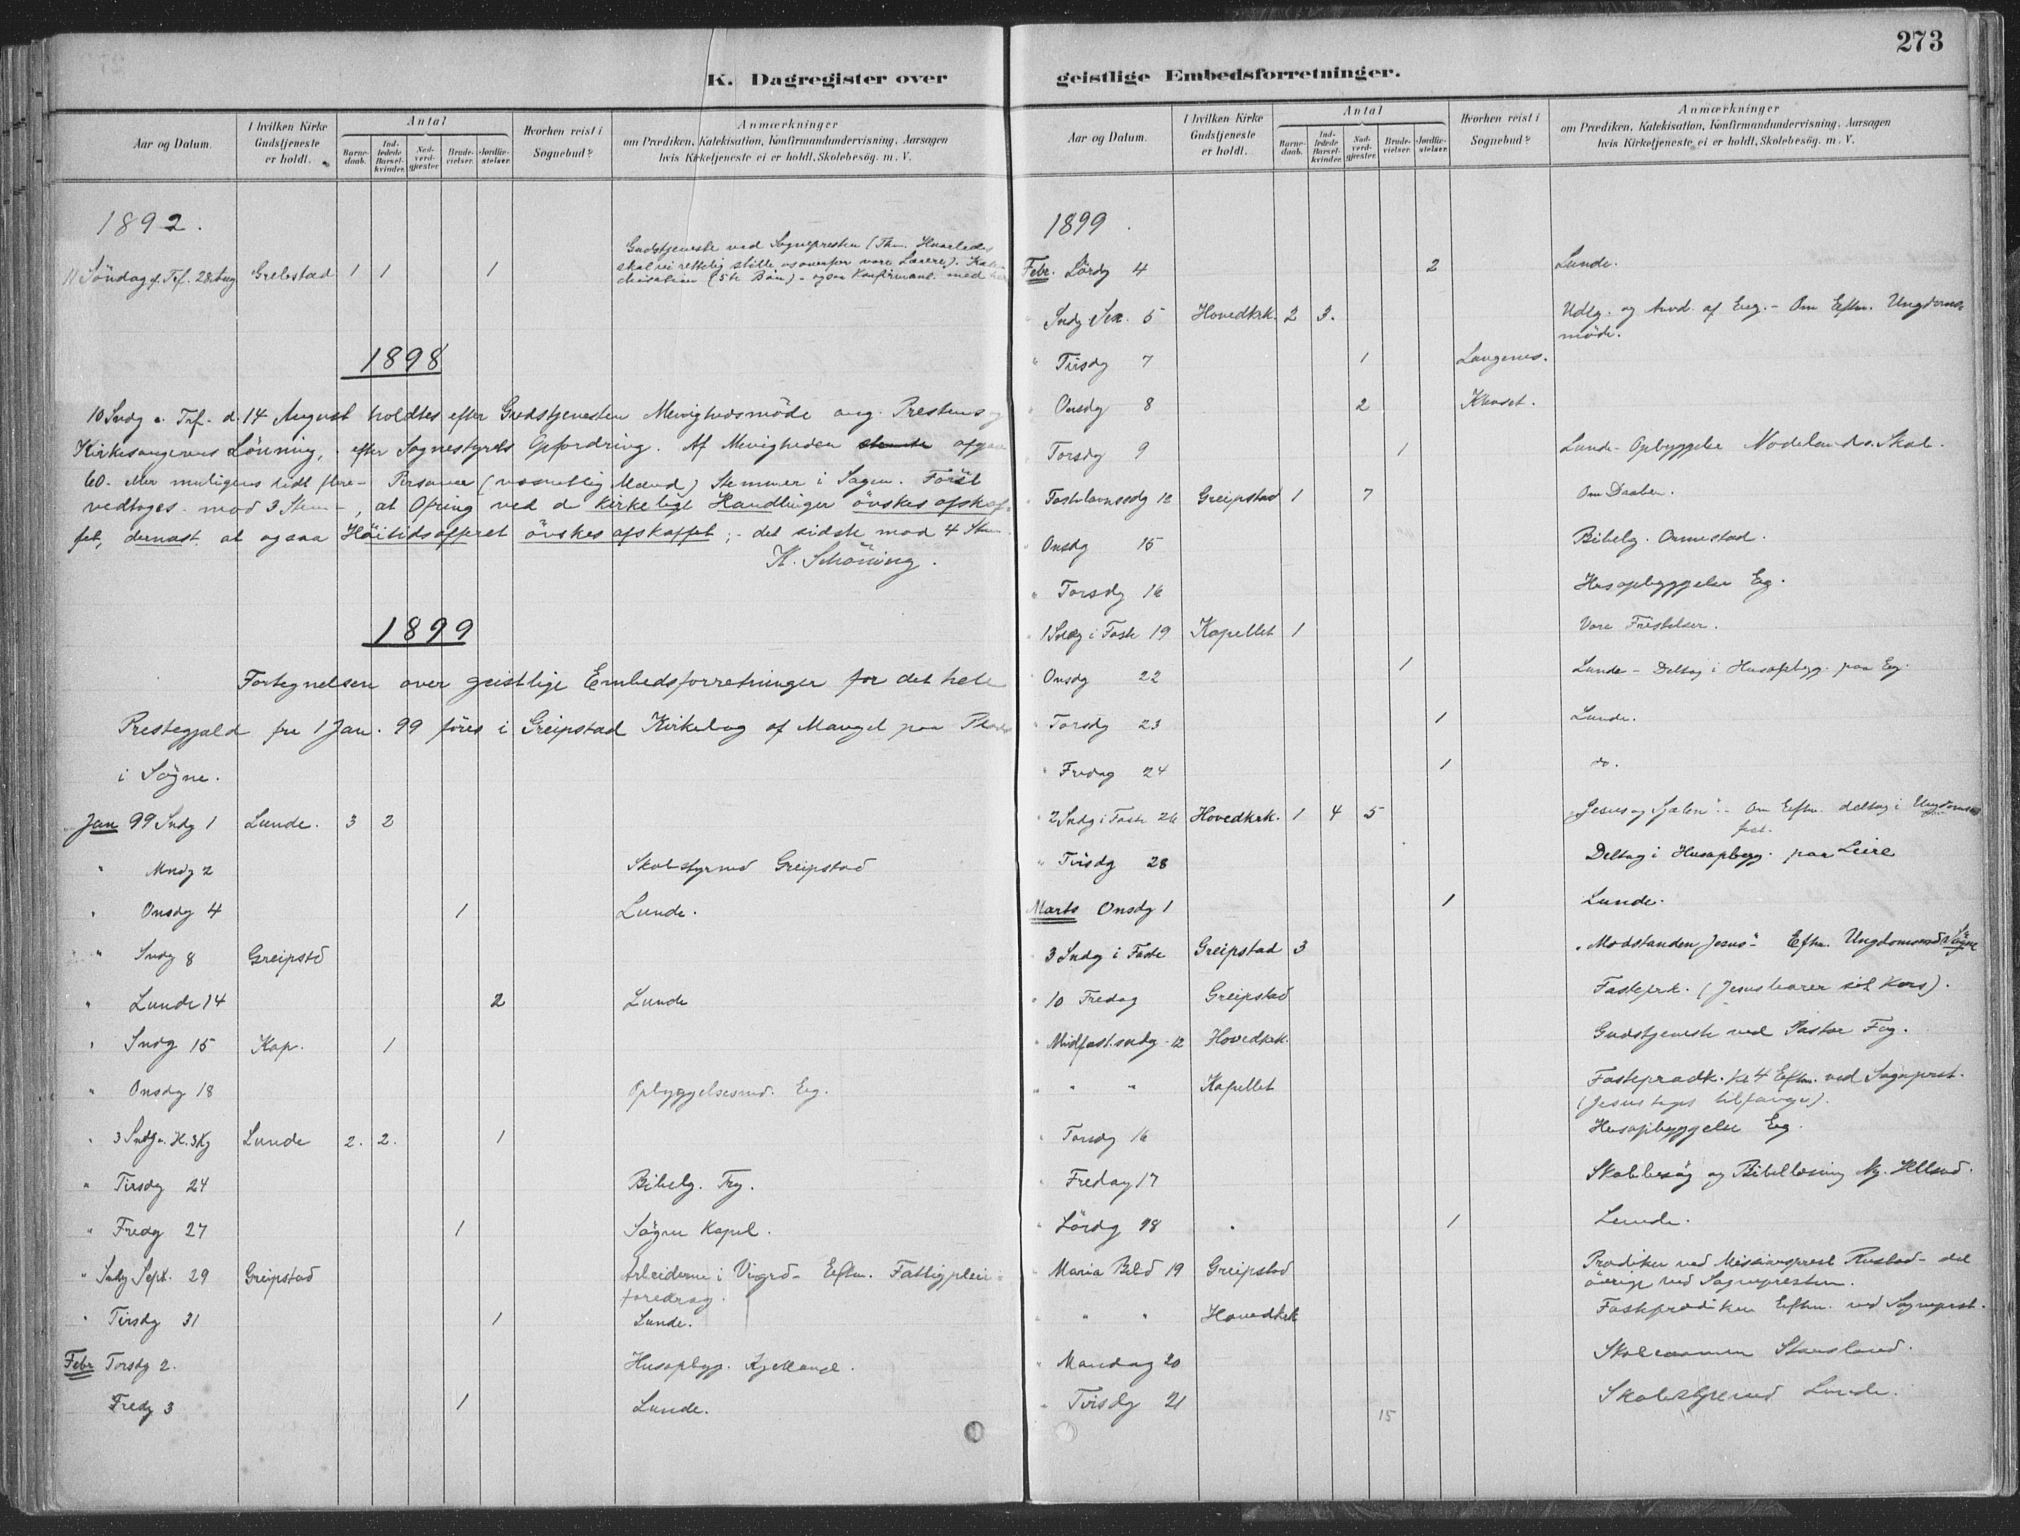 273
K. Dagregister over
Aar og Datum.
I hvilken Kirke Gudstjeneste er holdt.
Antal
Barne-daab.
Ind-ledede Barsel-kvinder.
Nad-verd-gjester.
Brude-vielser.
Jordfæ-stelser.
Hvorhen reist i Sognebud?
Anmærkninger
om Prædiken, Katekisation, Konfirmandundervisning, Aarsagen
hvis Kirketjeneste ei er holdt, Skolebesøg. m. V.
1892.
Gudstjeneste ved Sognepresten
skal vi rettelig stille os overfor vore Lærere). Kate-
11 Söndag e. Tref. 28 Aug Grebstad 1 1 1 chisation (5te Bön) - ogsaa Konfirmant. med
1898
10 Sndg e. Trf. d. 14 August holdtes efter Gudstjenesten Menighedsmöde ang. Prestens og
Kirkesangerens Lönning, efter Sognestyrets Opfordring. Af Menigheden stemte afgav
60 - eller muligens lidt flere - Personer (væsentlig Mænd) Stemmer i Sagen. Först
vedtoges - mod 3 Stem -, at Ofring ved de kirkelige Handlinger önskes afskaf-
fet, dernæst at ogsaa Höitidsofferet önskes afskaffet; - det sidste mod 4 Stem
K. Schöning.
1899
Fortegnelsen over geistlige Embedsforretninger for det hele
Prestegjæld fra 1 Jan. 99 föres i Greipstad Kirkebog af Mangel paa Plads
i Sögne.
Jan 99 Sndg 1 Lunde. 3 2
" Mndg 2 Skolestyremd Greipstad
" Onsdg 4 1 Lunde.
" Sndg 8 Greipstd
" Lunde 14 2 Lunde
" Sndg 15 Kap. 1
" Onsdg 18 Opbyggelsesmd. Eeg.
" 3 Sndg e. H. 3 Kg Lunde 2. 2. 1
" Tirsdg 24 Bibelg. Try.
" Fredg 27 1 Sögne Kapel.
" Sndg Sept. 29 Greipstad Arbeiderne i Vingrd - Eftm. Fattigpleie-
foredrag.
" Tirsdg 31 1 Lunde.
Febr Torsdg 2. Husopbyg. Kjelland.
Fredg 3 1 Lunde.
geistlige Embedsforretninger.
Aar og Datum.
I hvilken Kirke Gudstjeneste er holdt.
Antal
Barne-daab.
Ind-ledede Barsel-kvinder.
Nad-verd-gjester.
Brude-vielser.
Jordfæ-stelser.
Hvorhen reist i Sognebud?
Anmærkninger
om Prædiken, Katekisation, Konfirmandundervisning, Aarsagen
hvis Kirketjeneste ei er holdt, Skolebesøg. m. V.
1899.
Febr. Lördg 4 2 Lunde.
" Sndg Sex. 5 Hovedkrk. 2 3. Udlg. og Anvd. af Evg. - Om Eftm. Ungdoms-
möde.
" Tirsdg 7 1 Langenes.
" Onsdg 8 2
" Torsdg 9 1 Lunde - Opbyggelse Nodelands Skole.
" Fastelavnssdg 12 Greipstad 1 7 Om Daaben.
" Onsdg 15 Bibelg. Ormestad.
" Torsdg 16 Husopbyggelse Eeg.
" 1 Sndg i Faste 19 Kapellet 1 Vore Fristelser.
Onsdg 22 1 Lunde - Deltog i Husopbyg. paa Eeg.
" Torsdg 23 1 Lunde.
" Fredag 24 1 do.
" 2 Sndg i Faste 26 Hovedkrk. 1 4 5 "Jesus og Sjælen" - Om Eftm. deltog i Ungdoms
fest.
" Tirsdg 28 Deltog i Husopbygg. paa Leire
Marts Onsdg 1 1 Lunde.
" 3 Sndg i Faste Greipstad 3 "Modstanden Jesus" - Eftm. Ungdomsmd i Sögne
" 10 Fredag Greipstad Fasteprk. (Jesus bærer sit Kors).
" Midfast.sndg. 12 Hovedkrk. Gudstjeneste ved Pastor Fog.
" " " Kapellet Fasteprædk. Kl 4 Eftm. ved Sognprst.
(Jesus tages tilfange).
" Torsdg 16 Husopbyggelse Eeg.
" Fredag 17 Skolebesög og Bibellæsning
" Lördg 18 1 Lunde.
" Maria Bebd 19 Greipstad Prædiken ved Missionsprest Rustad - det
övrige ved Sognepresten.
" " " Hovedkrk Fasteprædiken Eftm. ved Sogneprst.
" Mandag 20 Skoleexamen
" Tirsdg 21 Skolestyremd Lunde.
15